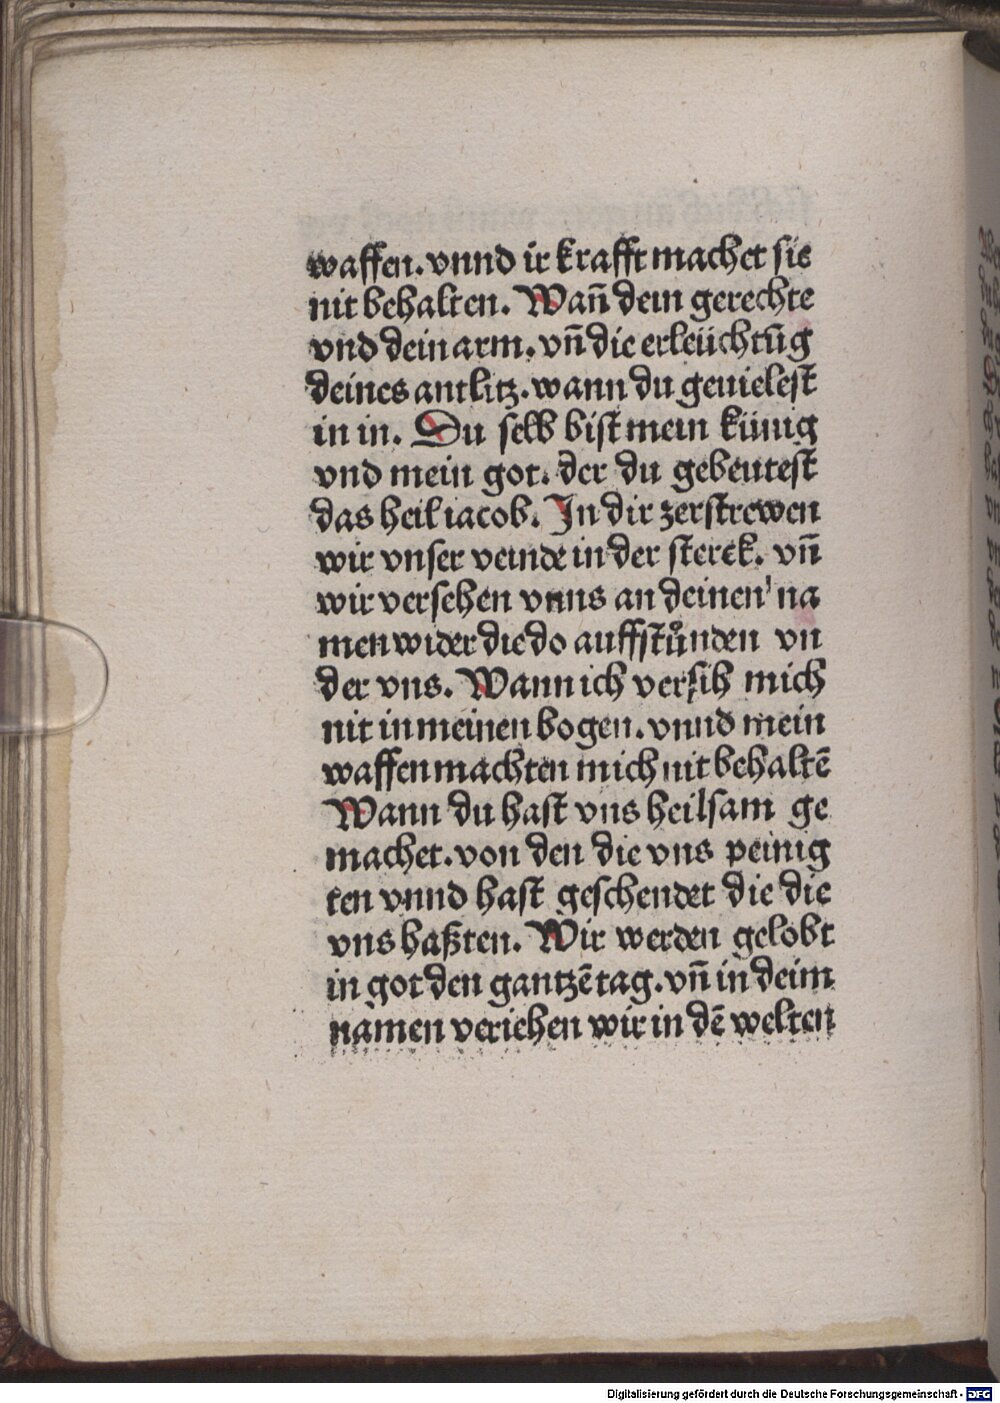 waffen. vnnd ir krafft machet sie
nit behalten. Wañ dein gerechte
vnd dein arm. vñ die erleüchtūg
deines antlitz. wann du geuielest
in in. Du selb bist mein künig
vnd mein got. der du gebeutest
das heil iacob. In dir zerstrewen
wir vnser veinde in der sterck. vñ
wir versehen vnns an deinen na
men wider die do auffstůnden vn
der vns. Wann ich versih mich
nit in meinen bogen. vnnd mein
waffen machten mich nit behaltē
Wann du hast vns heilsam ge
machet. von den die vns peinig
ten vnnd hast geschendet die die
vns haßten. Wir werden gelobt
in got den gantzē tag. vñ in deim
namen veriehen wir in dē welten
Digitalisierung gefördert durch die Deutsche Forschungsgemeinschaft - DFG